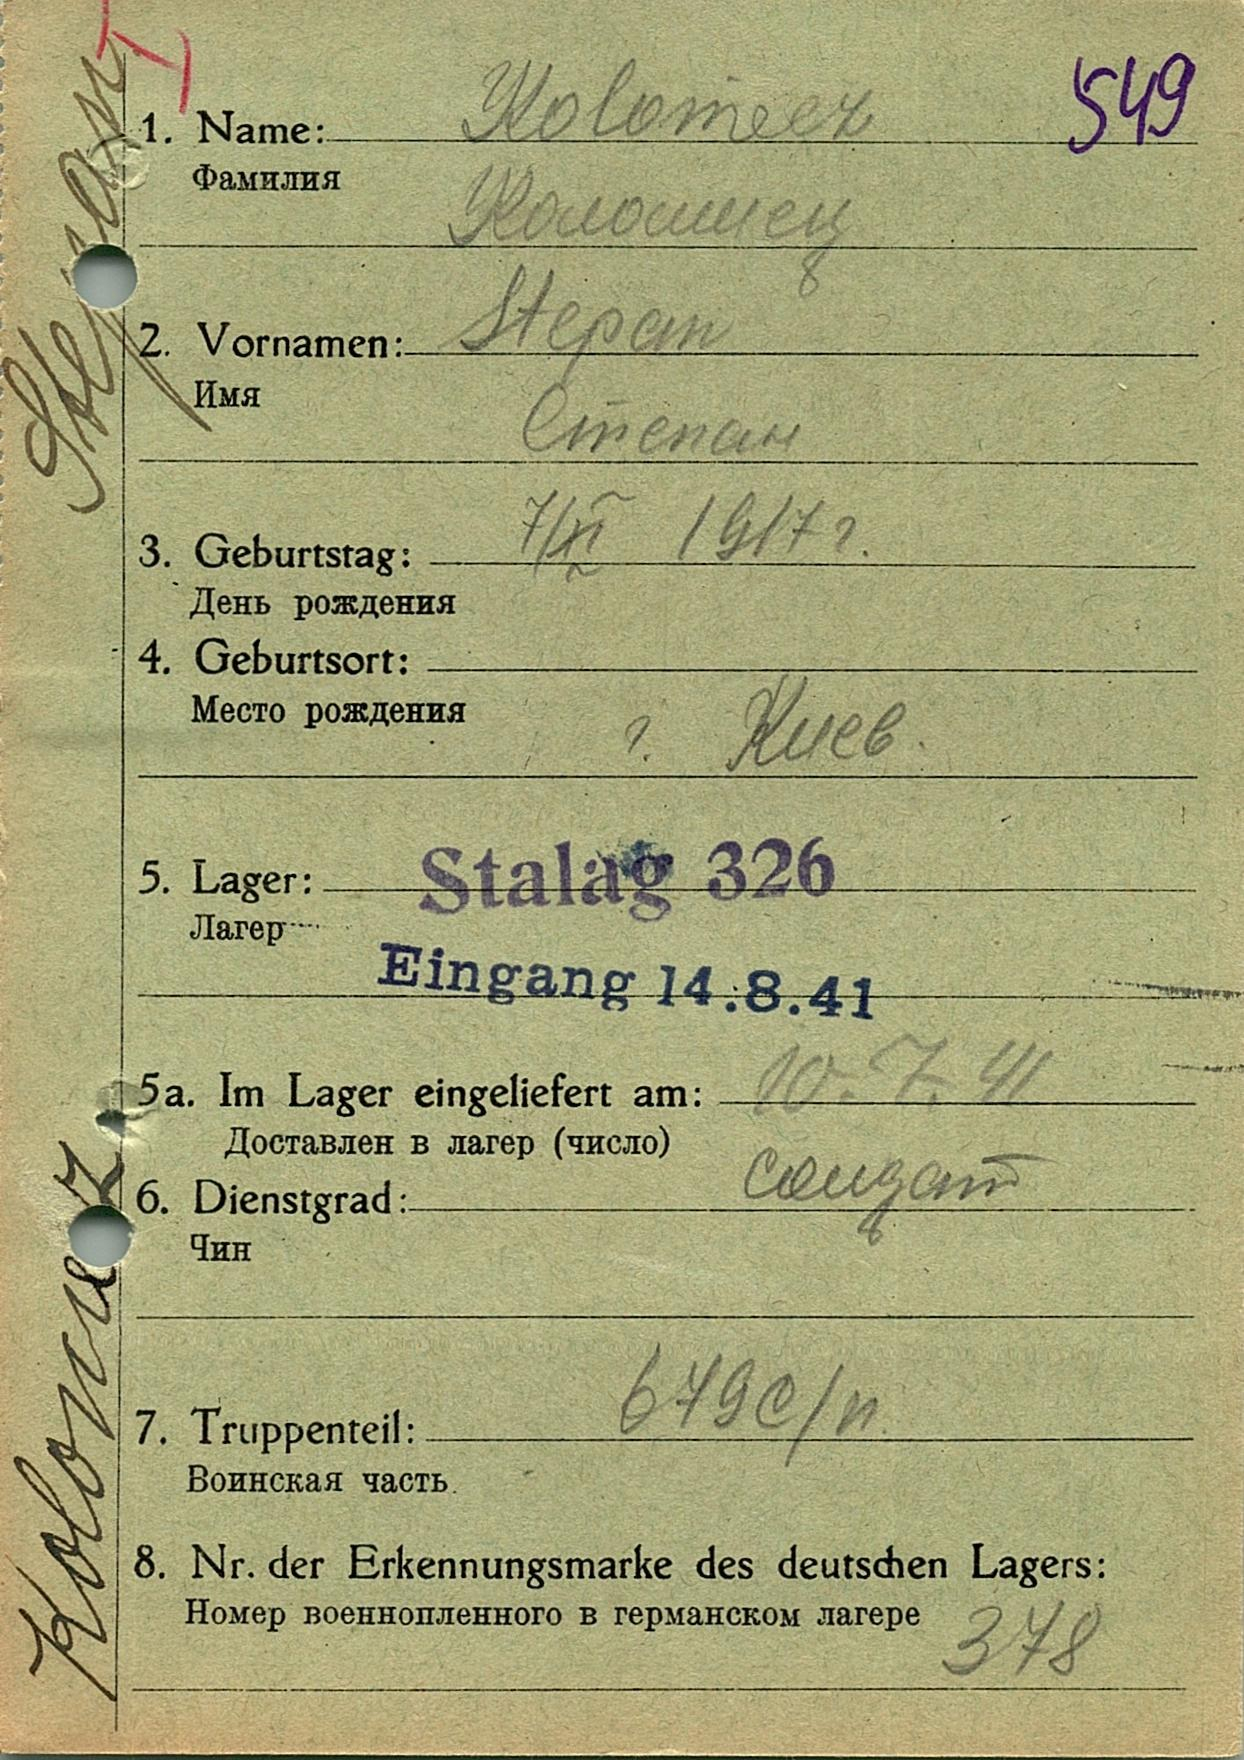 549
1. Name: Kolomeez
Фамилия
Коломиец
2. Vornamen: Stepan
Имя
Степан
3. Geburtstag: 7/XI 1917 г.
День рождения
4. Geburtsort:
Место рождения
г. Киев.
5. Lager: Stalag 326
Лагер
Eingang 14.8.41
5a. Im Lager eingeliefert am: 10.7.41
Доставлен в лагер (число)
6. Dienstgrad: солдат
Чин
7. Truppenteil: 679 с/п.
Воинская часть
8. Nr. der Erkennungsmarke des deutschen Lagers:
Номер военнопленного в германском лагере
378
Stepan